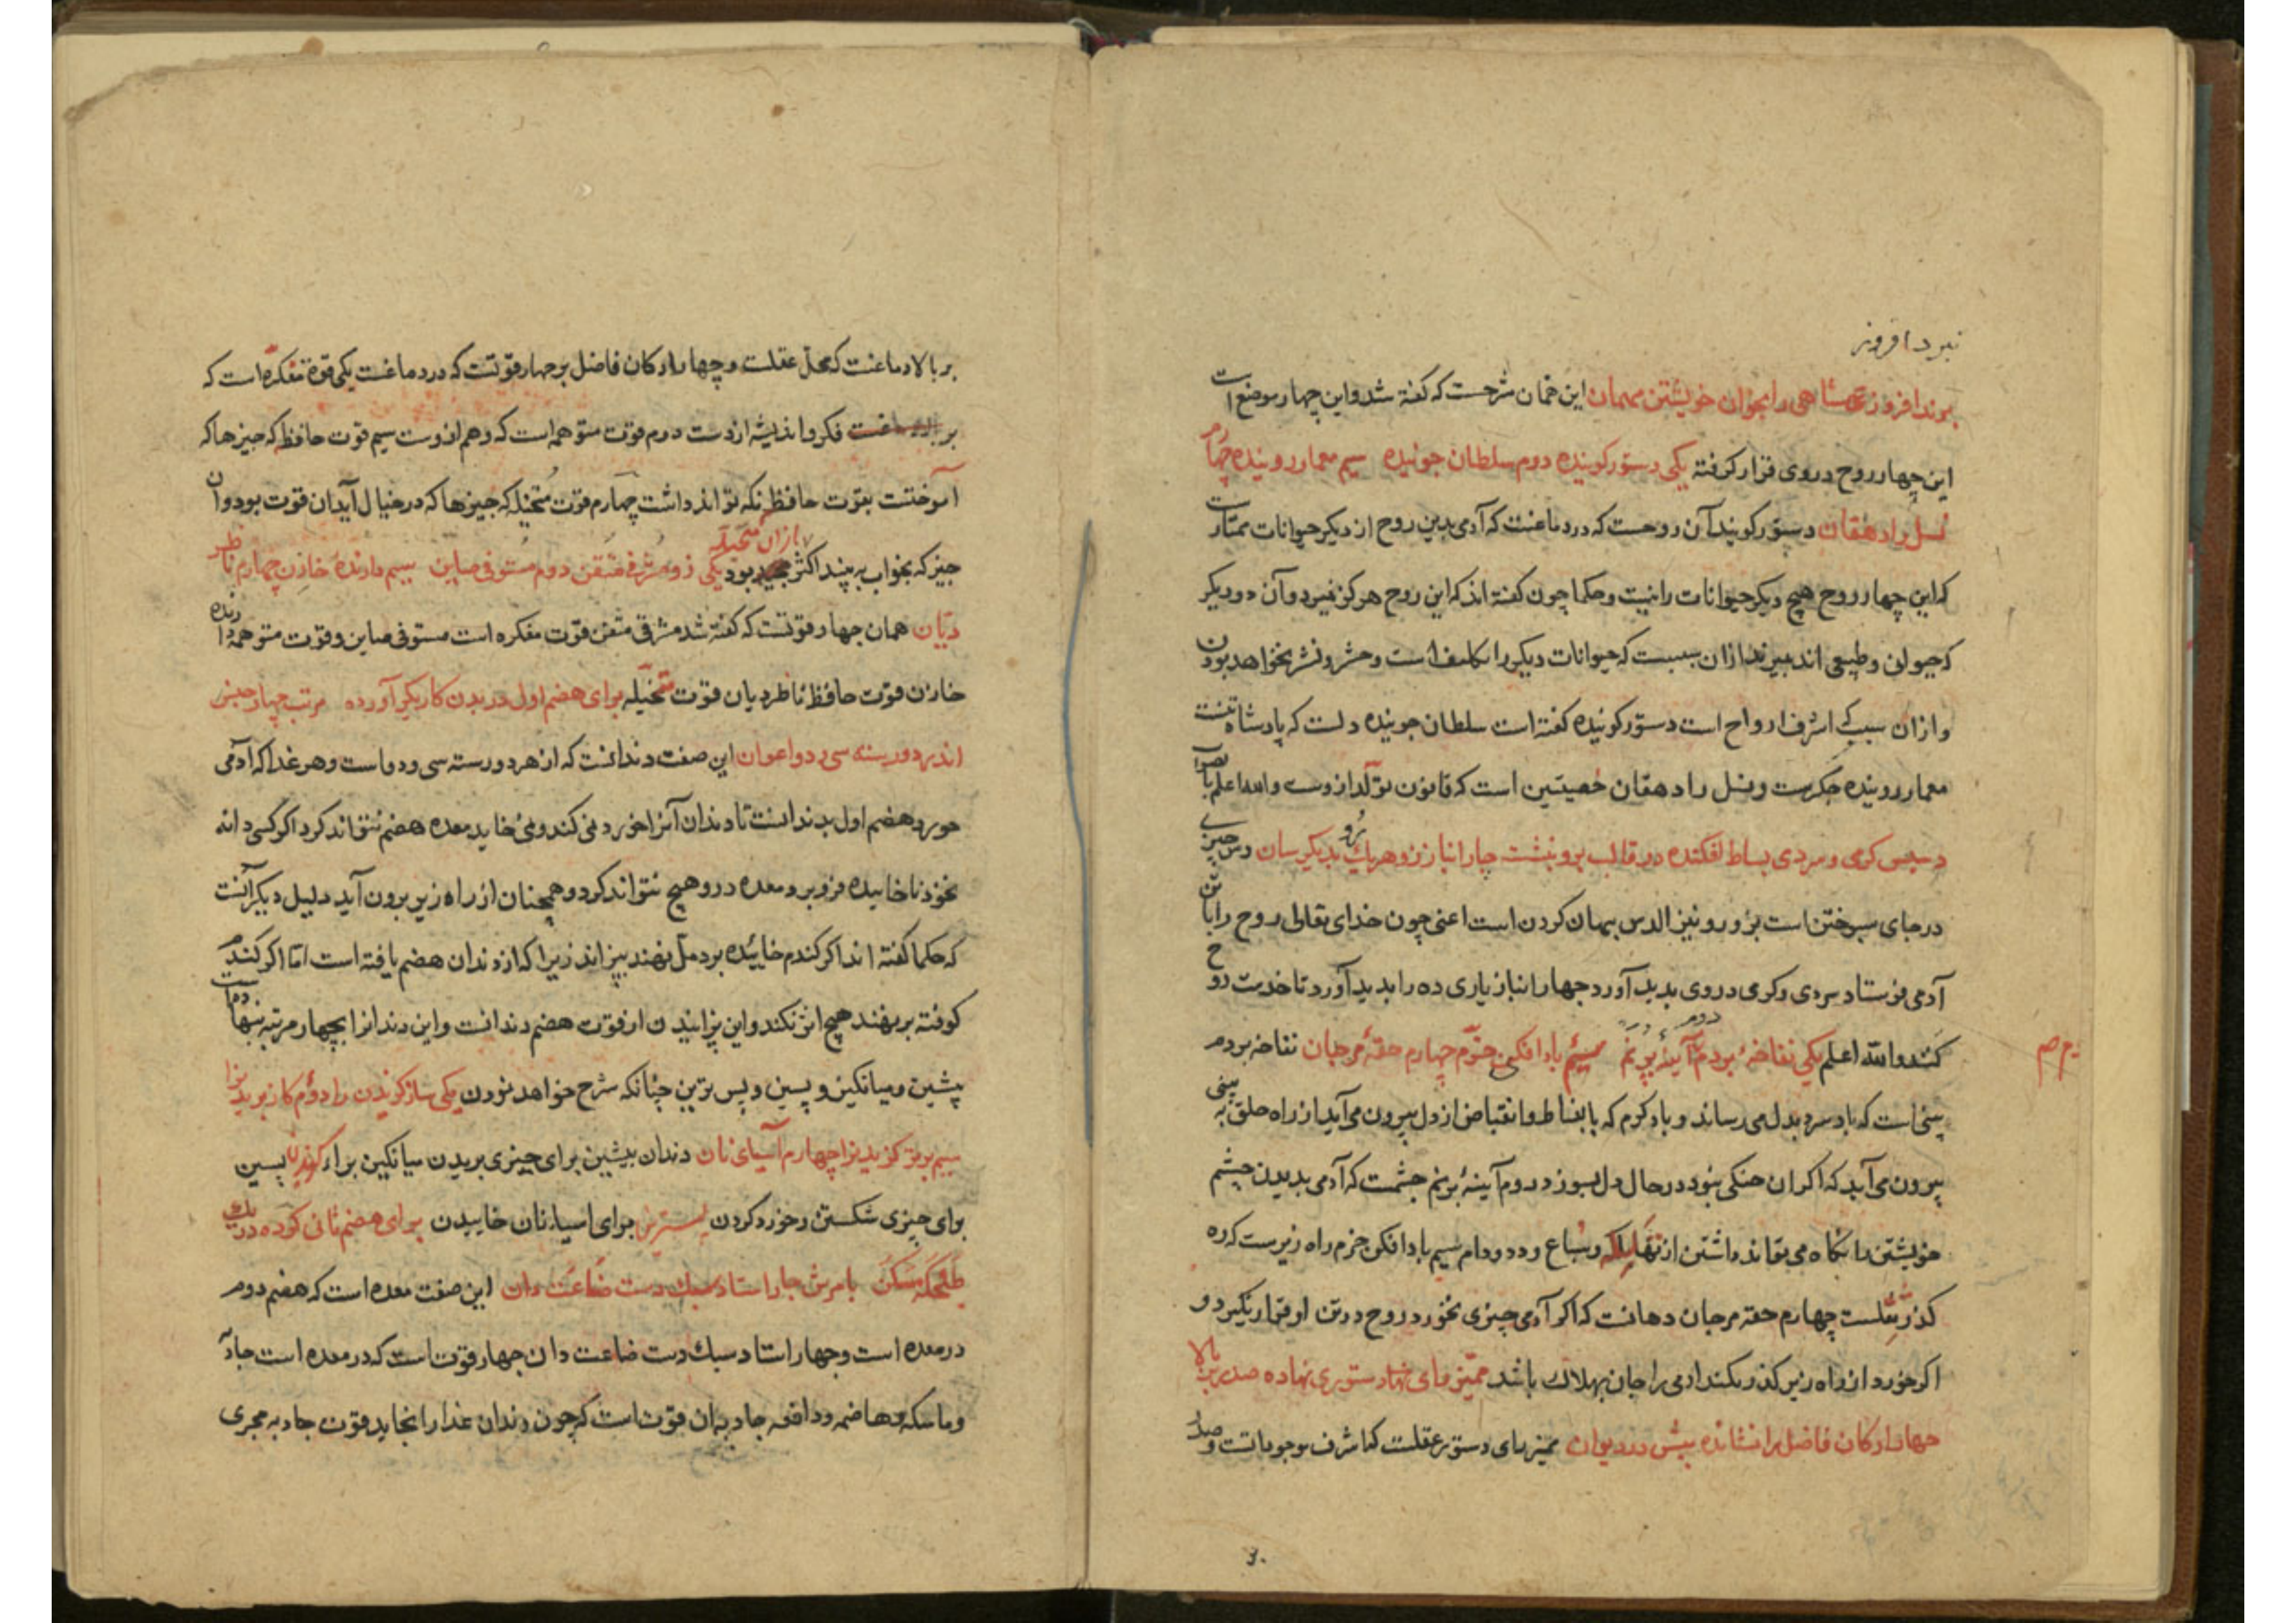 نبرد افروز
بوند افروز شاهی را بخوان خویشتن مهمان این خمان شرحست که کفته شد و این چهار موضع است
این چهار روح در وی قرار کرفته یکی دستور کوینده دوم سلطان جوینده سیم معمار روینده چهارم
نسل را دهقان دستور کویند آن روحست که در دماغست که آدمی بدین روح از دیکر حیوانات ممتاز است
که این چهار روح هیچ دیکر حیوانات را نیست و حکما چون کفته اند که این روح هرکز نمیرد و آن دو دیکر
که حیوان و طبیعی اند بمیرند از آن سببست که حیوانات دیکر را تکلیف است و حشر و نشر نخواهد بودن
و ازان سبب که اشرف ارواح است دستور کوینده کفته است سلطان جوینده دلست که پادشاه تنست
معمار روینده جکرست و نسل را دهقان خصیتین است که قانون تولد ازوست والله اعلم بالصواب
ز سپس کرمی و سردی بساط افکنده در قالب برو بنشت چار انباز زو هر یک بدیکر سان و پس چیزی
در جای سپوختن است بزور و نیز الدس پنهان کردن است اعنی چون خدای تعالی روح را باتن
آدمی فرستاد سردی و کرمی در وی بدید آورد چهار انباز یاری ده را بدید آورد تا خدمت روح
کنند والله اعلم یکی نفاخهٔ بردم دوم آیینهٔ بر نم سیم باد افکن خرم چهارم حقهٔ مرجان نفاخه بردم
بینی است که باد سرد بدل می رساند و باد کرم که بانبساط و انقباض از دل بیرون می آید از راه حلق به بینی
بیرون می آید که اکر ان خنکی نبود در حال دل بسوزد دوم آیینهٔ بر نم چشمست که آدمی بدیدن چشم
خویشتن را نکاه می تواند داشتن از تهلکه و سباع و دد و دام سیم باد افکن خرم راه زیرست که ره
کذر ثقلست چهارم حقه مرجان دهانست که اکر آدمی چیزی نخورد روح در تن او قرار نکیرد و
اکر خورد از راه زیر کذر نکند ادمی را جان بهلاک باشد ممیز رای دستوری نهاده صدر بر بالا
چهار ارکان فاضل را نشانده پیش در دیوان ممیز رای دستور عقلست که اشرف موجوداتست و صدر
یم صم
بر بالا دماغست که محل عقلست و چهار ارکان فاضل بر چهار قوتست که در دماغست یکی قوة مفکره است که
بر فکر و اندیشه ازوست دوم قوت متوهمه است که وهم ازوست سیم قوت حافظه که چیزها که
آموختست بقوت حافظه نکه تواند داشت چهارم قوت متخیله که چیزها که در خیال آید ان قوت بود و ان
چیز که بخواب بیند اکثر ازان متخیله بود یکی زو مشرفی متقن دوم مستوفی صاین سیم دارندهٔ خازن چهارم ناظر
دیان همان چهار قوتست که کفته شد مشرفی متقن قوت مفکره است مستوفی صاین و قوت متوهمه دارنده
خازن قوت حافظ ناظر دیان قوت متخیله برای هضم اول در بدن کاریکر آورده مرتب چهار جنس
اندر دو رسته سی و دو اعوان این صفت دندانست که از هر دو رسته سی و دو است و هر غدا که آدمی
خورد هضم اول بدندانست تا دندان آنرا خورد نمی کند و نمی خاید معده هضم نتواند کرد اکر کسی دانه
نخوذ ناخاییده فرو برد معده در و هیچ نتواند کرد و همچنان از راه زیر برون آید دلیل دیکر آنست
که حکما کفته اند اکر کندم خاییده بر دمل نهند بپزاند زیرا که از دندان هضم یافته است اما اکر کندم
کوفته بر نهند هیچ اثر نکند و این پزانیدن از قوت هضم دندانست و این دندانرا بچهار مرتبه نهادست
پیشین و میانکین و پسین و پس ترین چنانکه شرح خواهد نمودن یکی ساز کزیدن را دوم کاز بریدنرا
سیم بر بز کزیدنرا چهارم آسیای نان دندان پیشین برای چیزی بریدن میانکین براء کزیدن پسین
برای چیزی شکستن و خورد کردن پسترین برای اسیاء نان خاییدن برای هضم ثانی کرده در یک
مسکن بامرش چار استاد سبک دست صناعت دان این صفت معده است که هضم دوم
در معده است و چهار استاد سبک دست صناعت دان چهار قوتست که در معده است جاذبه
و ماسکه و هاضمه و دافعه جاذبه ان قوتست که چون دندان غذا را بخاید قوت جاذبه مجری
۳۰